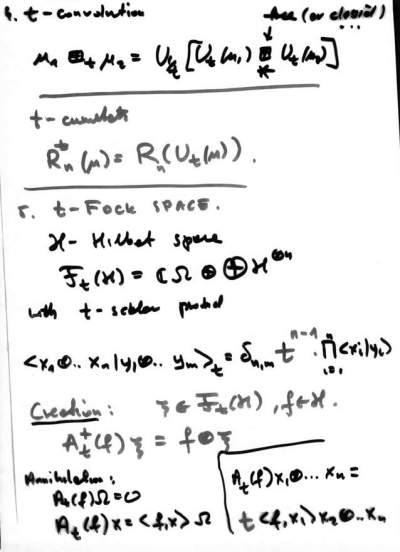 4. t-convolution free (or classical) ...
μ₁ ⊞_t μ₂ = U_{1/t} [U_t(μ₁) ⊞ U_t(μ₂)]
*
t-cumulants
R_n^t(μ) = R_n(U_t(μ)).
5. t-Fock SPACE.
H - Hilbert space
F_t(H) = ℂΩ ⊕ ⊕ H^{⊗n}
with t-scalar product
<x₁⊗.. x_n | y₁⊗.. y_m>_t = δ_{n,m} t^{n-1} · ∏_{i=1}^n <x_i|y_i>
Creation: ξ ∈ F_t(H), f∈H.
A_t^+(f) ξ = f⊗ξ
Annihilation:
A_t(f)Ω = 0
A_t(f) x = <f,x> Ω
A_t(f) x₁⊗... x_n =
t <f,x₁> x₂⊗.. x_n